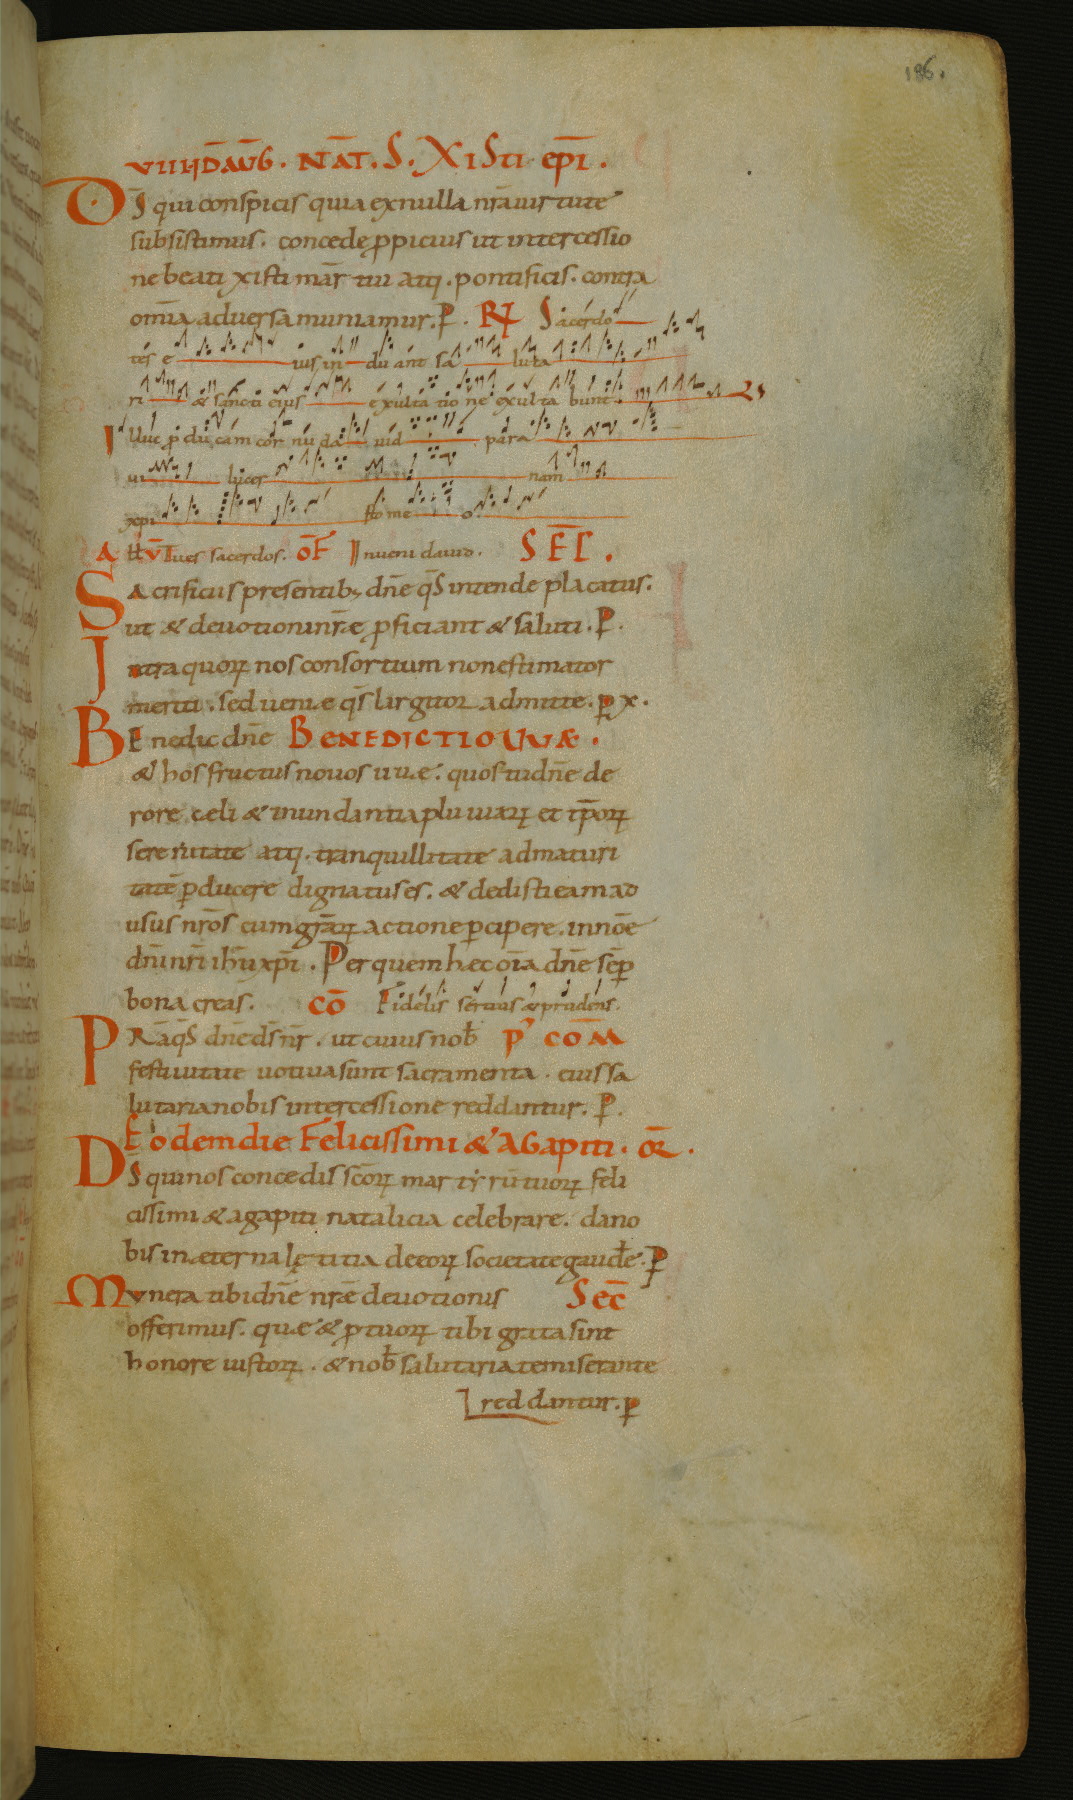 186.
VIII ID AUG. NAT. S. XISTI EPI.
DS qui conspicis quia ex nulla nrā uirtute
subsistimus. concede ppicius ut intercessio
ne beati xisti mar tiri atq. pontificis. contra
omīa aduersa muniamur. P. R Sacerdo
tes e ius in du ant sa luta
ri & sancti eius exulta tio ne exulta bunt. V
Illuc pdu cam cor nu da uid para
ui lucer nam
xpi sto me o.
All V Iuet sacerdos. OF Inueni dauid. SEC.
Sacrificiis presentib; dn̄e qs̄ intende placatus.
ut & deuotioni nrē pficiant & saluti. P.
Intra quorꝝ nos consortium non estimator
meriti. sed uenie qs̄ largitor admitte. p x.
BEnedic dn̄e BENEDICTIO UVÆ.
& hos fructus nouos uue. quos tu dn̄e de
rore celi & inundantia pluuiarꝝ et tp̄orꝝ
serenitate atq. tranquillitate ad maturi
tatē pducere dignatus es. & dedisti eam ad
usus nrōs cum gr̄arꝝ actione pcipere. in nōe
dn̄i nr̄i ihū xp̄i. Per quem hec oīa dn̄e sēp
bona creas. CŌ Fidelis seruus & prudens.
PRa qs̄ dn̄e ds̄ nr̄. ut cuius nob̄ P' COM
festiuitate uotiua sunt sacramenta. eius sa
lutaria nobis intercessione reddantur. P.
Eodem die Felicissimi & Agapiti. OR.
DS̄ qui nos concedis scōrꝝ mar tyrū tuorꝝ feli
cissimi & agapiti natalicia celebrare. da no
bis in æterna lętitia de eorꝝ societate gaudē. P
Munera tibi dn̄e nrē deuotionis SEC
offerimus. que & p tuorꝝ tibi grata sint
honore iustorꝝ. & nob̄ salutaria te miserante
reddantur. p